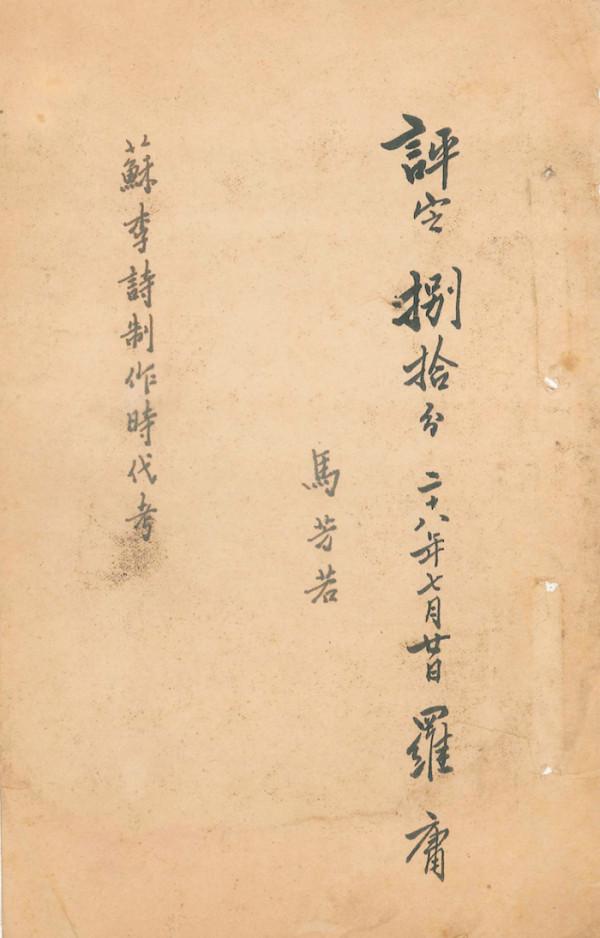 評定捌拾分 二十八年七月廿日 羅庸
馬芳若
蘇李詩制作時代考